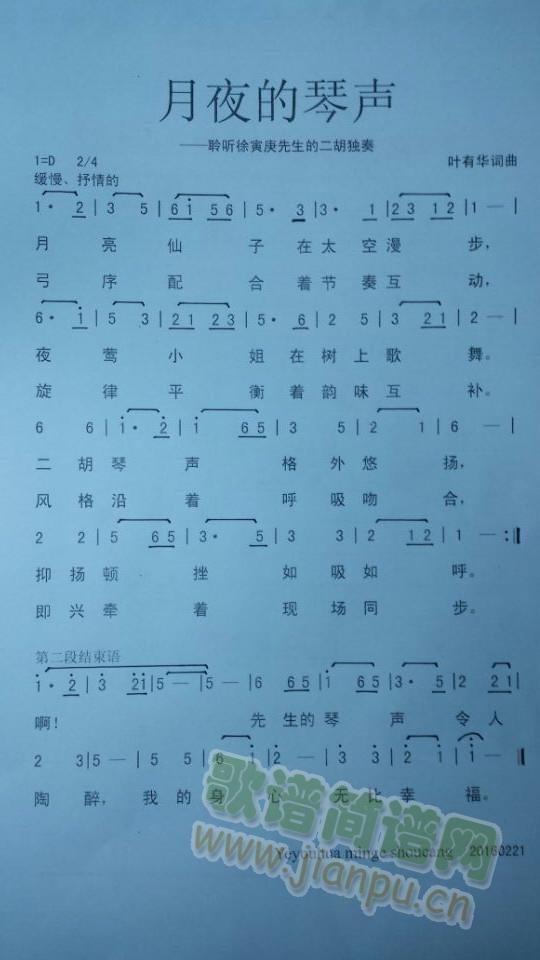 月夜的琴声
——聆听徐寅庚先生的二胡独奏
1=D 2/4 叶有华词曲
缓慢、抒情的
1· 2 | 3 5 | 6i 56 | 5· 3 | 3· 6 | 23 12 | 2 — |
月 亮 仙 子 在 太 空 漫 步，
弓 序 配 合 着 节 奏 互 动，
6· i | 5 3 | 21 23 | 5· 6 | 2 5 | 3 21 | 2 — |
夜 莺 小 姐 在 树 上 歌 舞。
旋 律 平 衡 着 韵 味 互 补。
6 6 | i· 2 | i 65 | 3 5 | 2 1 | 6 — |
二 胡 琴 声 格 外 悠 扬，
风 格 沿 着 呼 吸 吻 合，
2 2 | 5 65 | 3· 5 | 3 3 | 2 12 | 1 — :||
抑 扬 顿 挫 如 吸 如 呼。
即 兴 牵 着 现 场 同 步。
第二段结束语
i· 2 | 3 2i | 5 — | 5 — | 6 65 | i 65 | 3· 5 | 2 21 |
啊! 先 生 的 琴 声 令 人
2 35 | 5 — | 5 5 | 6 i | 2 — | 3 3 | 2 2 | i — | i — ||
陶 醉，我 的 身 心 无 比 幸 福。
歌谱简谱网
Yeyouhua minge shoucang 20160221
www.jianpu.cn